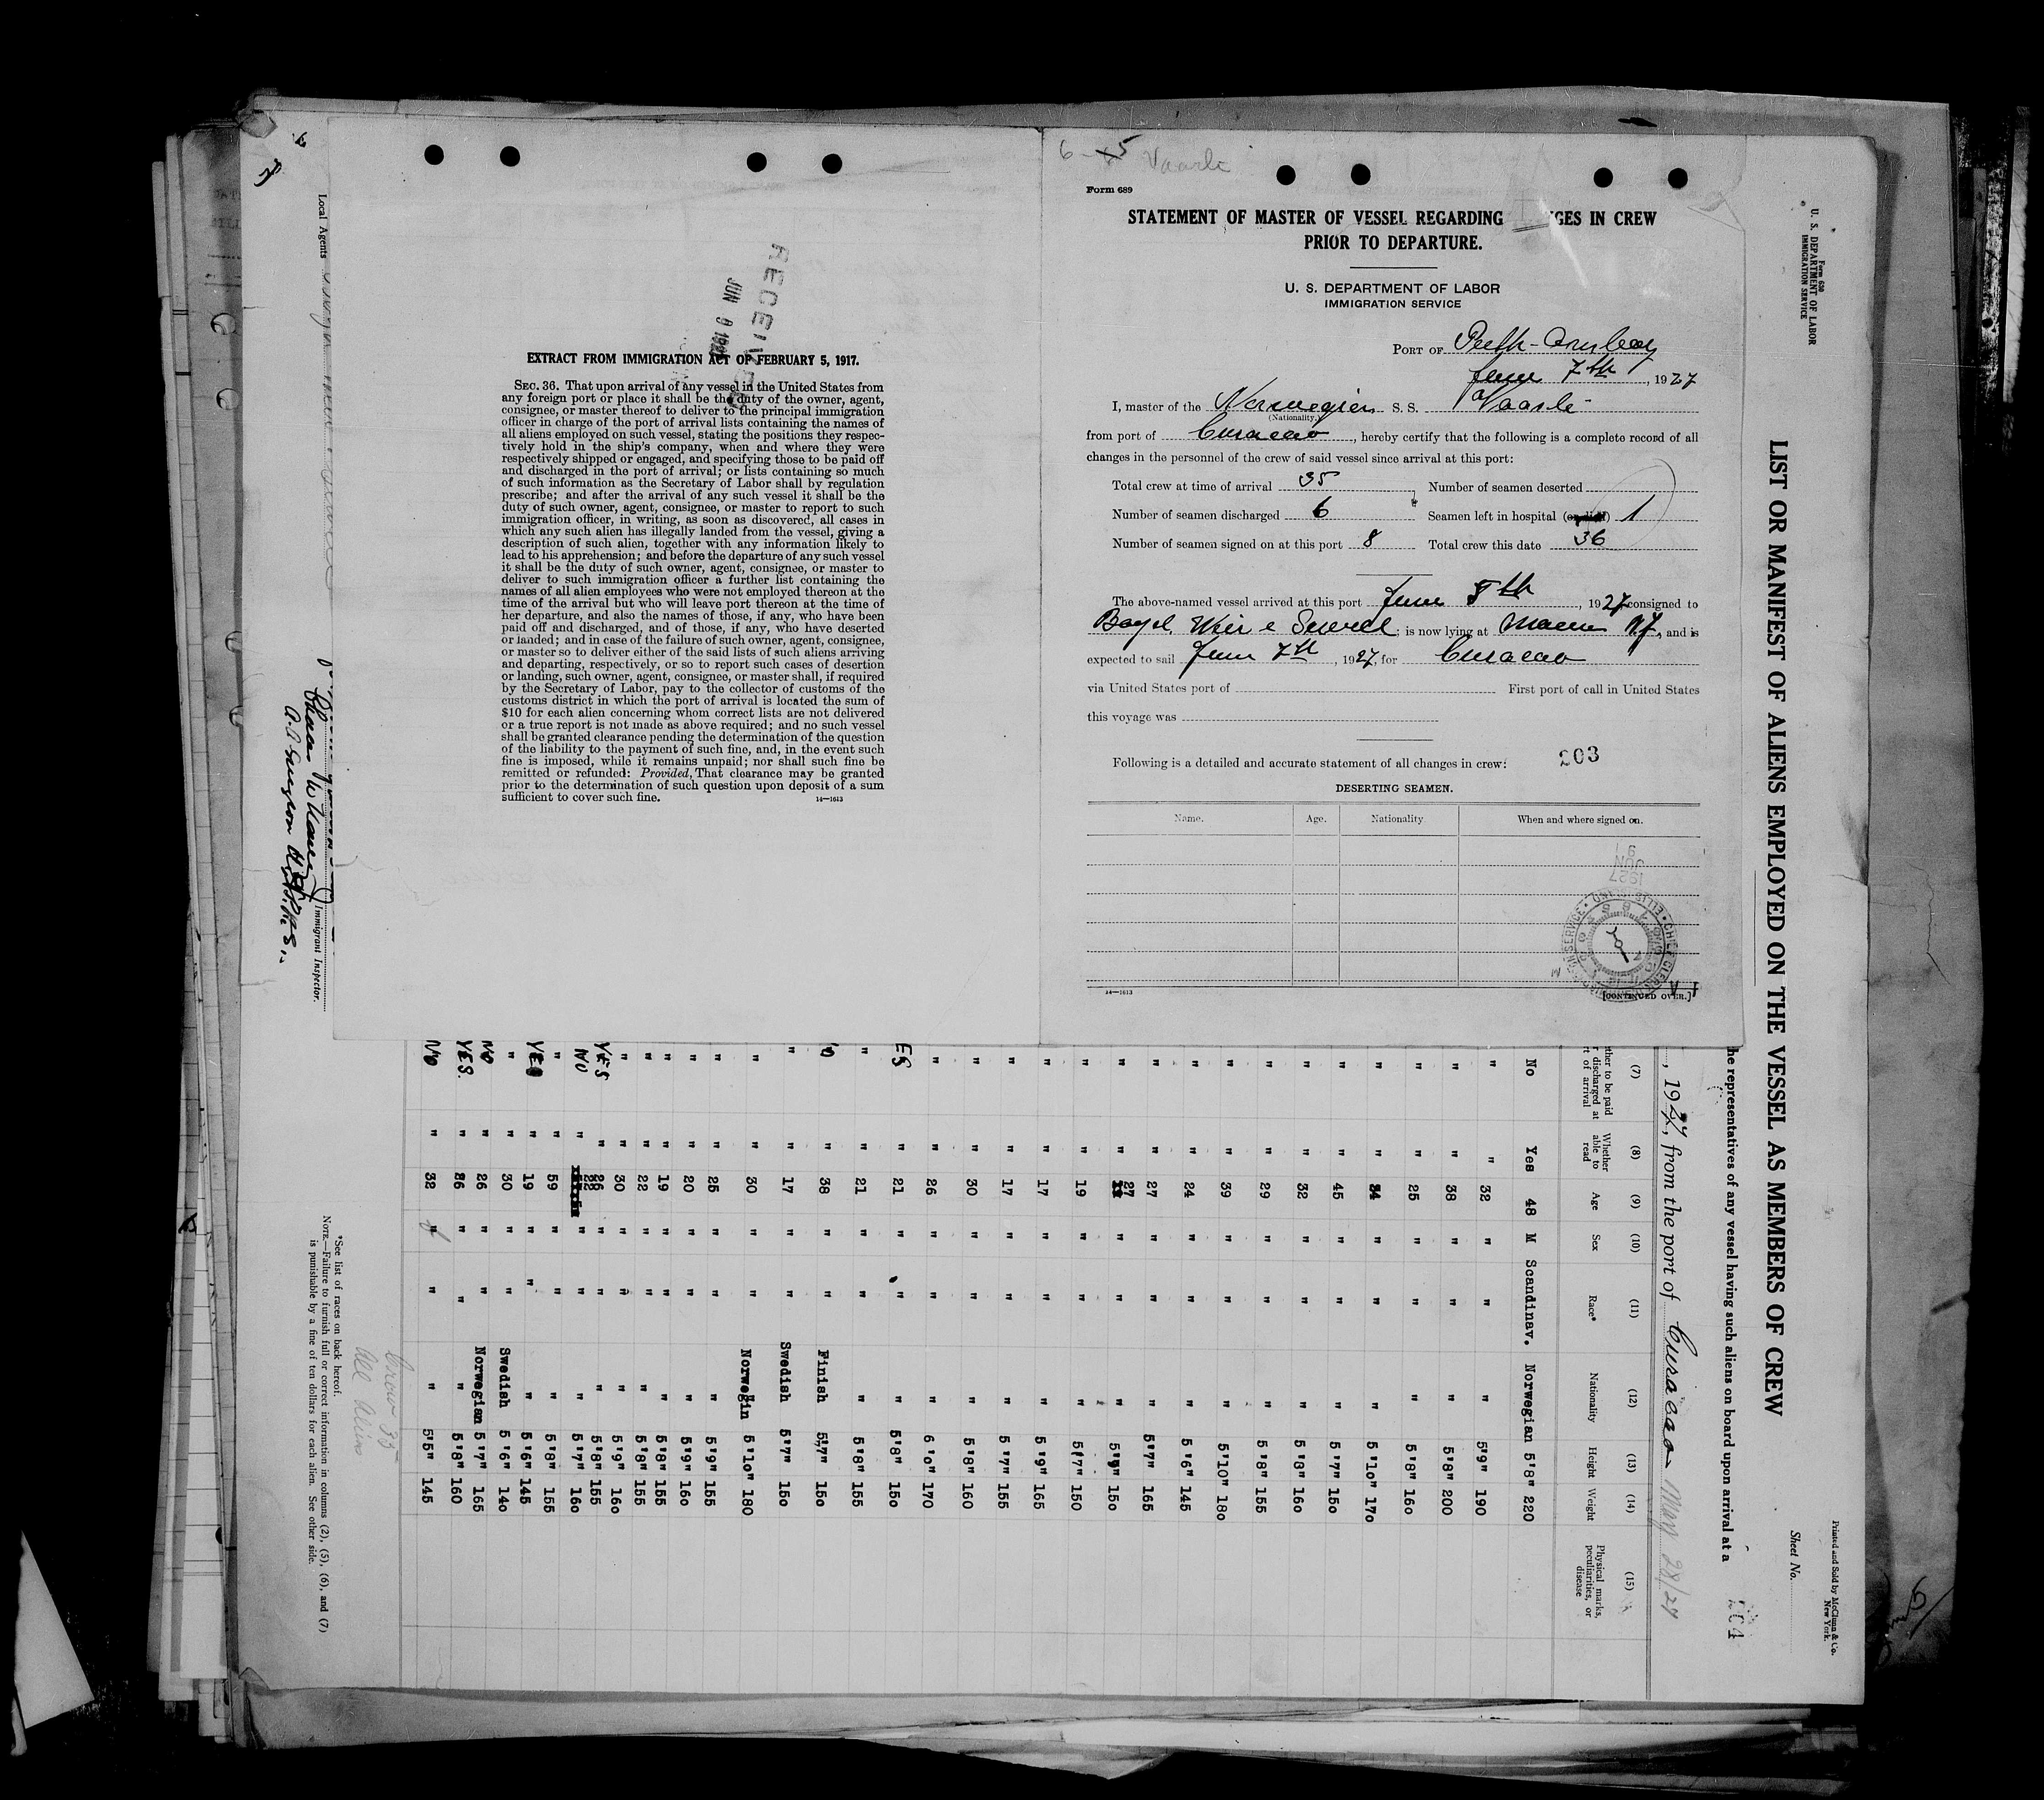 6 - 5 Vaarli
Form 689
STATEMENT OF MASTER OF VESSEL REGARDING GES IN CREW
PRIOR TO DEPARTURE.
U. S. DEPARTMENT OF LABOR
IMMIGRATION SERVICE
PORT OF Perth-Amboy
June 7th, 1927
I, master of the Norwegian S. S. Vaarli
(Nationality.)
from port of Curacao, hereby certify that the following is a complete record of all
changes in the personnel of the crew of said vessel since arrival at this port:
Total crew at time of arrival 35 Number of seamen deserted
Number of seamen discharged 6 Seamen left in hospital 1
Number of seamen signed on at this port 8 Total crew this date 36
The above-named vessel arrived at this port June 5th, 1927 consigned to
Boyd, Weir & Sewell; is now lying at N.J., and is
expected to sail June 7th, 1927, for Curacao
via United States port of First port of call in United States
this voyage was
Following is a detailed and accurate statement of all changes in crew:
203
DESERTING SEAMEN.
Name. Age. Nationality. When and where signed on.
JUN 9 1927
14—1613
[CONTINUED OVER.]
RECEIVED
JUN 9 1927
EXTRACT FROM IMMIGRATION ACT OF FEBRUARY 5, 1917.
SEC. 36. That upon arrival of any vessel in the United States from
any foreign port or place it shall be the duty of the owner, agent,
consignee, or master thereof to deliver to the principal immigration
officer in charge of the port of arrival lists containing the names of
all aliens employed on such vessel, stating the positions they respec-
tively hold in the ship's company, when and where they were
respectively shipped or engaged, and specifying those to be paid off
and discharged in the port of arrival; or lists containing so much
of such information as the Secretary of Labor shall by regulation
prescribe; and after the arrival of any such vessel it shall be the
duty of such owner, agent, consignee, or master to report to such
immigration officer, in writing, as soon as discovered, all cases in
which any such alien has illegally landed from the vessel, giving a
description of such alien, together with any information likely to
lead to his apprehension; and before the departure of any such vessel
it shall be the duty of such owner, agent, consignee, or master to
deliver to such immigration officer a further list containing the
names of all alien employees who were not employed thereon at the
time of the arrival but who will leave port thereon at the time of
her departure, and also the names of those, if any, who have been
paid off and discharged, and of those, if any, who have deserted
or landed; and in case of the failure of such owner, agent, consignee,
or master so to deliver either of the said lists of such aliens arriving
and departing, respectively, or so to report such cases of desertion
or landing, such owner, agent, consignee, or master shall, if required
by the Secretary of Labor, pay to the collector of customs of the
customs district in which the port of arrival is located the sum of
$10 for each alien concerning whom correct lists are not delivered
or a true report is not made as above required; and no such vessel
shall be granted clearance pending the determination of the question
of the liability to the payment of such fine, and, in the event such
fine is imposed, while it remains unpaid; nor shall such fine be
remitted or refunded: Provided, That clearance may be granted
prior to the determination of such question upon deposit of a sum
sufficient to cover such fine.
14—1613
Form 680
U. S. DEPARTMENT OF LABOR
IMMIGRATION SERVICE
Printed and Sold by McClunn & Co.
New York.
Sheet No.
LIST OR MANIFEST OF ALIENS EMPLOYED ON THE VESSEL AS MEMBERS OF CREW
204
he representatives of any vessel having such aliens on board upon arrival at a
, 1927, from the port of Curacao May 28/27
(7) (8) (9) (10) (11) (12) (13) (14) (15)
ther to be paid r discharged at rt of arrival Whether able to read Age Sex Race* Nationality Height Weight Physical marks, peculiarities, or disease
No Yes 48 M Scandinav. Norwegian 5'8" 220
" " 32 " " " 5'9" 190
" " 38 " " " 5'8" 200
" " 25 " " " 5'8" 160
" " 34 " " " 5'10" 170
" " 45 " " " 5'7" 150
" " 32 " " " 5'8" 160
" " 29 " " " 5'8" 155
" " 39 " " " 5'10" 180
" " 24 " " " 5'6" 145
" " 27 " " " 5'7" 165
" " 27 " " " 150
" " 19 " " " 5'7" 150
" " 17 " " " 5'9" 165
" " 17 " " " 5'7" 155
" " 30 " " " 5'8" 160
" " 26 " " " 6'0" 170
ES " 21 " " " 5'8" 150
" " 21 " " " 5'8" 155
" 38 " " Finish 5'7" 150
" " 17 " " Swedish 5'7" 150
" " 30 " " Norwegin 5'10" 180
" " 25 " " " 5'9" 155
" " 20 " " " 5'9" 160
" " 19 " " " 5'8" 155
" " 22 " " " 5'8" 155
" " 30 " " " 5'9" 160
YES " 26 " " " 5'8" 155
NO " 22 " " " 5'7" 160
" " 59 " " " 5'8" 155
YES " 19 " " " 5'6" 145
" " 30 " " Swedish 5'6" 140
NO " 26 " " Norwegian 5'7" 165
YES. " 26 " " " 5'8" 160
NO " 32 " " " 5'5" 145
Crew 35
All Aliens
*See list of races on back hereof.
NOTE.—Failure to furnish full or correct information in columns (2), (5), (6), and (7)
is punishable by a fine of ten dollars for each alien. See other side.
Local Agents
Immigrant Inspector.